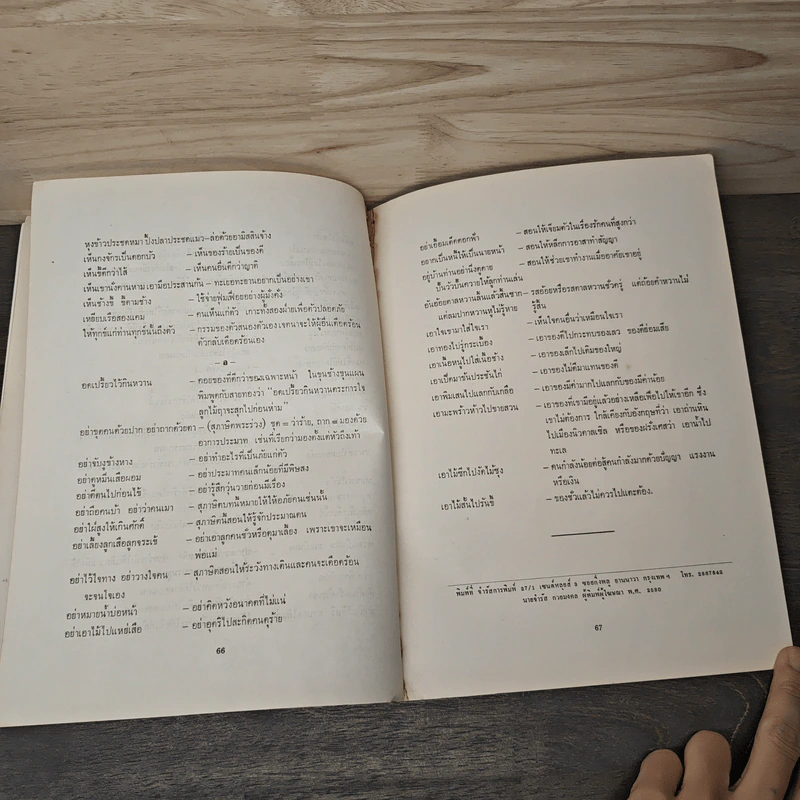 หุงข้าวประชดหมา ปิ้งปลาประชดแมว–ล่อด้วยอามิสสินจ้าง
เห็นกงจักรเป็นดอกบัว – เห็นของร้ายเป็นของดี
เห็นขี้ดีกว่าไส้ – เห็นคนอื่นดีกว่าญาติ
เห็นเขานั่งคานหาม เอามือประสานก้น – ทะเยอทะยานอยากเป็นอย่างเขา
เห็นช้างขี้ ขี้ตามช้าง – ใช้จ่ายฟุ่มเฟือยอย่างผู้มั่งคั่ง
เหยียบเรือสองแคม – คนเห็นแก่ตัว เกาะทั้งสองฝ่ายเพื่อตัวปลอดภัย
ให้ทุกข์แก่ท่านทุกข์นั้นถึงตัว – กรรมของตัวสนองตัวเอง เจตนาจะให้ผู้อื่นเดือดร้อน
ตัวกลับเดือดร้อนเอง
– อ –
อดเปรี้ยวไว้กินหวาน – คอยของที่ดีกว่าของเฉพาะหน้า ในขุนช้างขุนแผน
พิมพูดกับสายทองว่า “อดเปรี้ยวไว้กินหวานตระการใจ
ลูกไม้ฤาจะสุกไปก่อนห่าม”
อย่าขุดคนด้วยปาก อย่าถากด้วยตา – (สุภาษิตพระร่วง) ขุด = ว่าร้าย, ถาก = มองด้วย
อาการประมาท เช่นที่เรียกว่ามองตั้งแต่หัวถึงเท้า
อย่าจับงูข้างหาง – อย่าทำอะไรที่เป็นภัยแก่ตัว
อย่าดูหมื่นเสือผอม – อย่าประมาทคนเล็กน้อยที่มีพิษสง
อย่าตีตนไปก่อนไข้ – อย่ารู้สึกวุ่นวายก่อนมีเรื่อง
อย่าถือคนบ้า อย่าว่าคนเมา – สุภาษิตบทนี้หมายให้ให้อภัยคนเช่นนั้น
อย่าใฝ่สูงให้เกินศักดิ์ – สุภาษิตนี้สอนให้รู้จักประมาณตน
อย่าเลี้ยงลูกเสือลูกจระเข้ – อย่าเอาลูกคนชั่วหรือดุมาเลี้ยง เพราะเขาจะเหมือน
พ่อแม่
อย่าไว้ใจทาง อย่าวางใจคน – สุภาษิตสอนให้ระวังทางเดินและคนจะเดือดร้อน
จะจนใจเอง
อย่าหมายน้ำบ่อหน้า – อย่าคิดหวังอนาคตที่ไม่แน่
อย่าเอาไม้ไปแหย่เสือ – อย่าอุตริไปสะกิดคนดุร้าย
66
อย่าเอื้อมเด็ดดอกฟ้า – สอนให้เจียมตัวในเรื่องรักคนที่สูงกว่า
อยากเป็นหนี้ให้เป็นนายหน้า – สอนให้หลีกการอาสาทำสัญญา
อยู่บ้านท่านอย่านิ่งดูดาย – สอนให้ช่วยเขาทำงานเมื่ออาศัยเขาอยู่
ปั้นวัวปั้นควายให้ลูกท่านเล่น
อันอ้อยตาลหวานลิ้นแล้วสิ้นซาก – รสอ้อยหรือรสตาลหวานชั่วครู่ แต่ถ้อยคำหวานไม่
แต่ลมปากหวานหูไม่รู้หาย รู้สิ้น
เอาใจเขามาใส่ใจเรา – เห็นใจคนอื่นว่าเหมือนใจเรา
เอาทองไปรู่กระเบื้อง – เอาของดีไปกระทบของเลว ของดีย่อมเสีย
เอาเนื้อหนูไปใส่เนื้อช้าง – เอาของเล็กไปเติมของใหญ่
เอาเป็ดมาขันประชันไก่ – เอาของไม่ดีมาแทนของดี
เอาพิมเสนไปแลกกับเกลือ – เอาของมีค่ามากไปแลกกับของมีค่าน้อย
เอามะพร้าวห้าวไปขายสวน – เอาของที่เขามีอยู่แล้วอย่างเหลือเฟือไปให้เขาอีก ซึ่ง
เขาไม่ต้องการ ใกล้เคียงกับอังกฤษที่ว่า เอาถ่านหิน
ไปเมืองนิวคาสเซิล หรือของฝรั่งเศสว่า เอาน้ำไป
ทะเล
เอาไม้ซีกไปงัดไม้ซุง – คนกำลังน้อยต่อสู้คนกำลังมากด้วยปัญญา แรงงาน
หรือเงิน
เอาไม้สั้นไปรันขี้ – ของชั่วแล้วไม่ควรไปแตะต้อง.
พิมพ์ที่ จำรัสการพิมพ์ 27/1 เซนต์หลุยส์ 3 ซอยกิ่งพลู ยานนาวา กรุงเทพฯ โทร. 2867242
นายจำรัส กวยมงคล ผู้พิมพ์ผู้โฆษณา พ.ศ. 2530
67